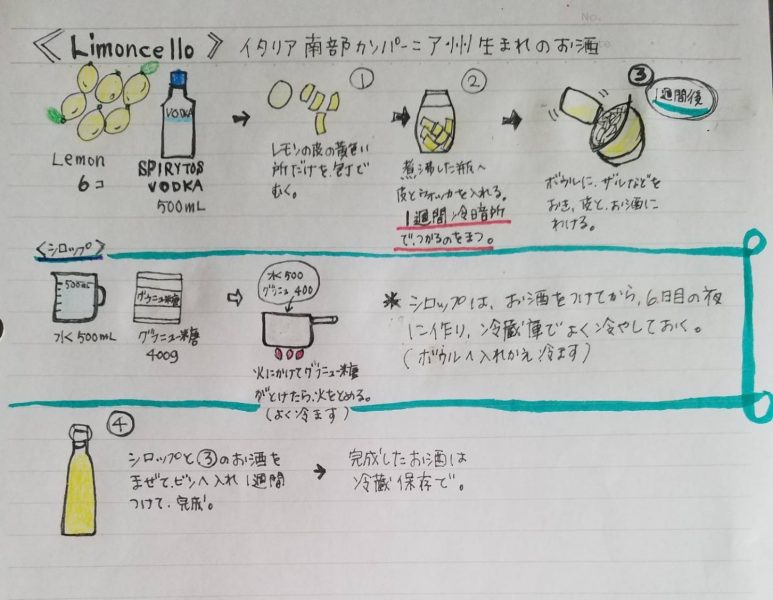 No.
《Limoncello》 イタリア南部カンパーニア州生まれのお酒
VODKA
Lemon
6コ
SPIRYTOS
VODKA
500mL
①
レモンの皮の黄色い
所だけを、包丁で
むく。
②
煮沸した瓶へ
皮とウォッカを入れる。
1週間冷暗所
でつかるのをまつ。
③
1週間後
ボウルに、ザルなどを
おき、皮と、お酒に
わける。
<シロップ>
500mL
水500mL
グラニュー糖
グラニュー糖
400g
水500
グラニュ400
火にかけてグラニュー糖
がとけたら、火をとめる。
(よく冷ます)
* シロップは、お酒をつけてから、6日目の夜
に作り、冷蔵庫でよく冷やしておく。
(ボウルへ入れかえ冷ます)
④
シロップと③のお酒を
まぜて、ビンへ入れ1週間
つけて、完成。
→ 完成したお酒は
冷蔵保存で。